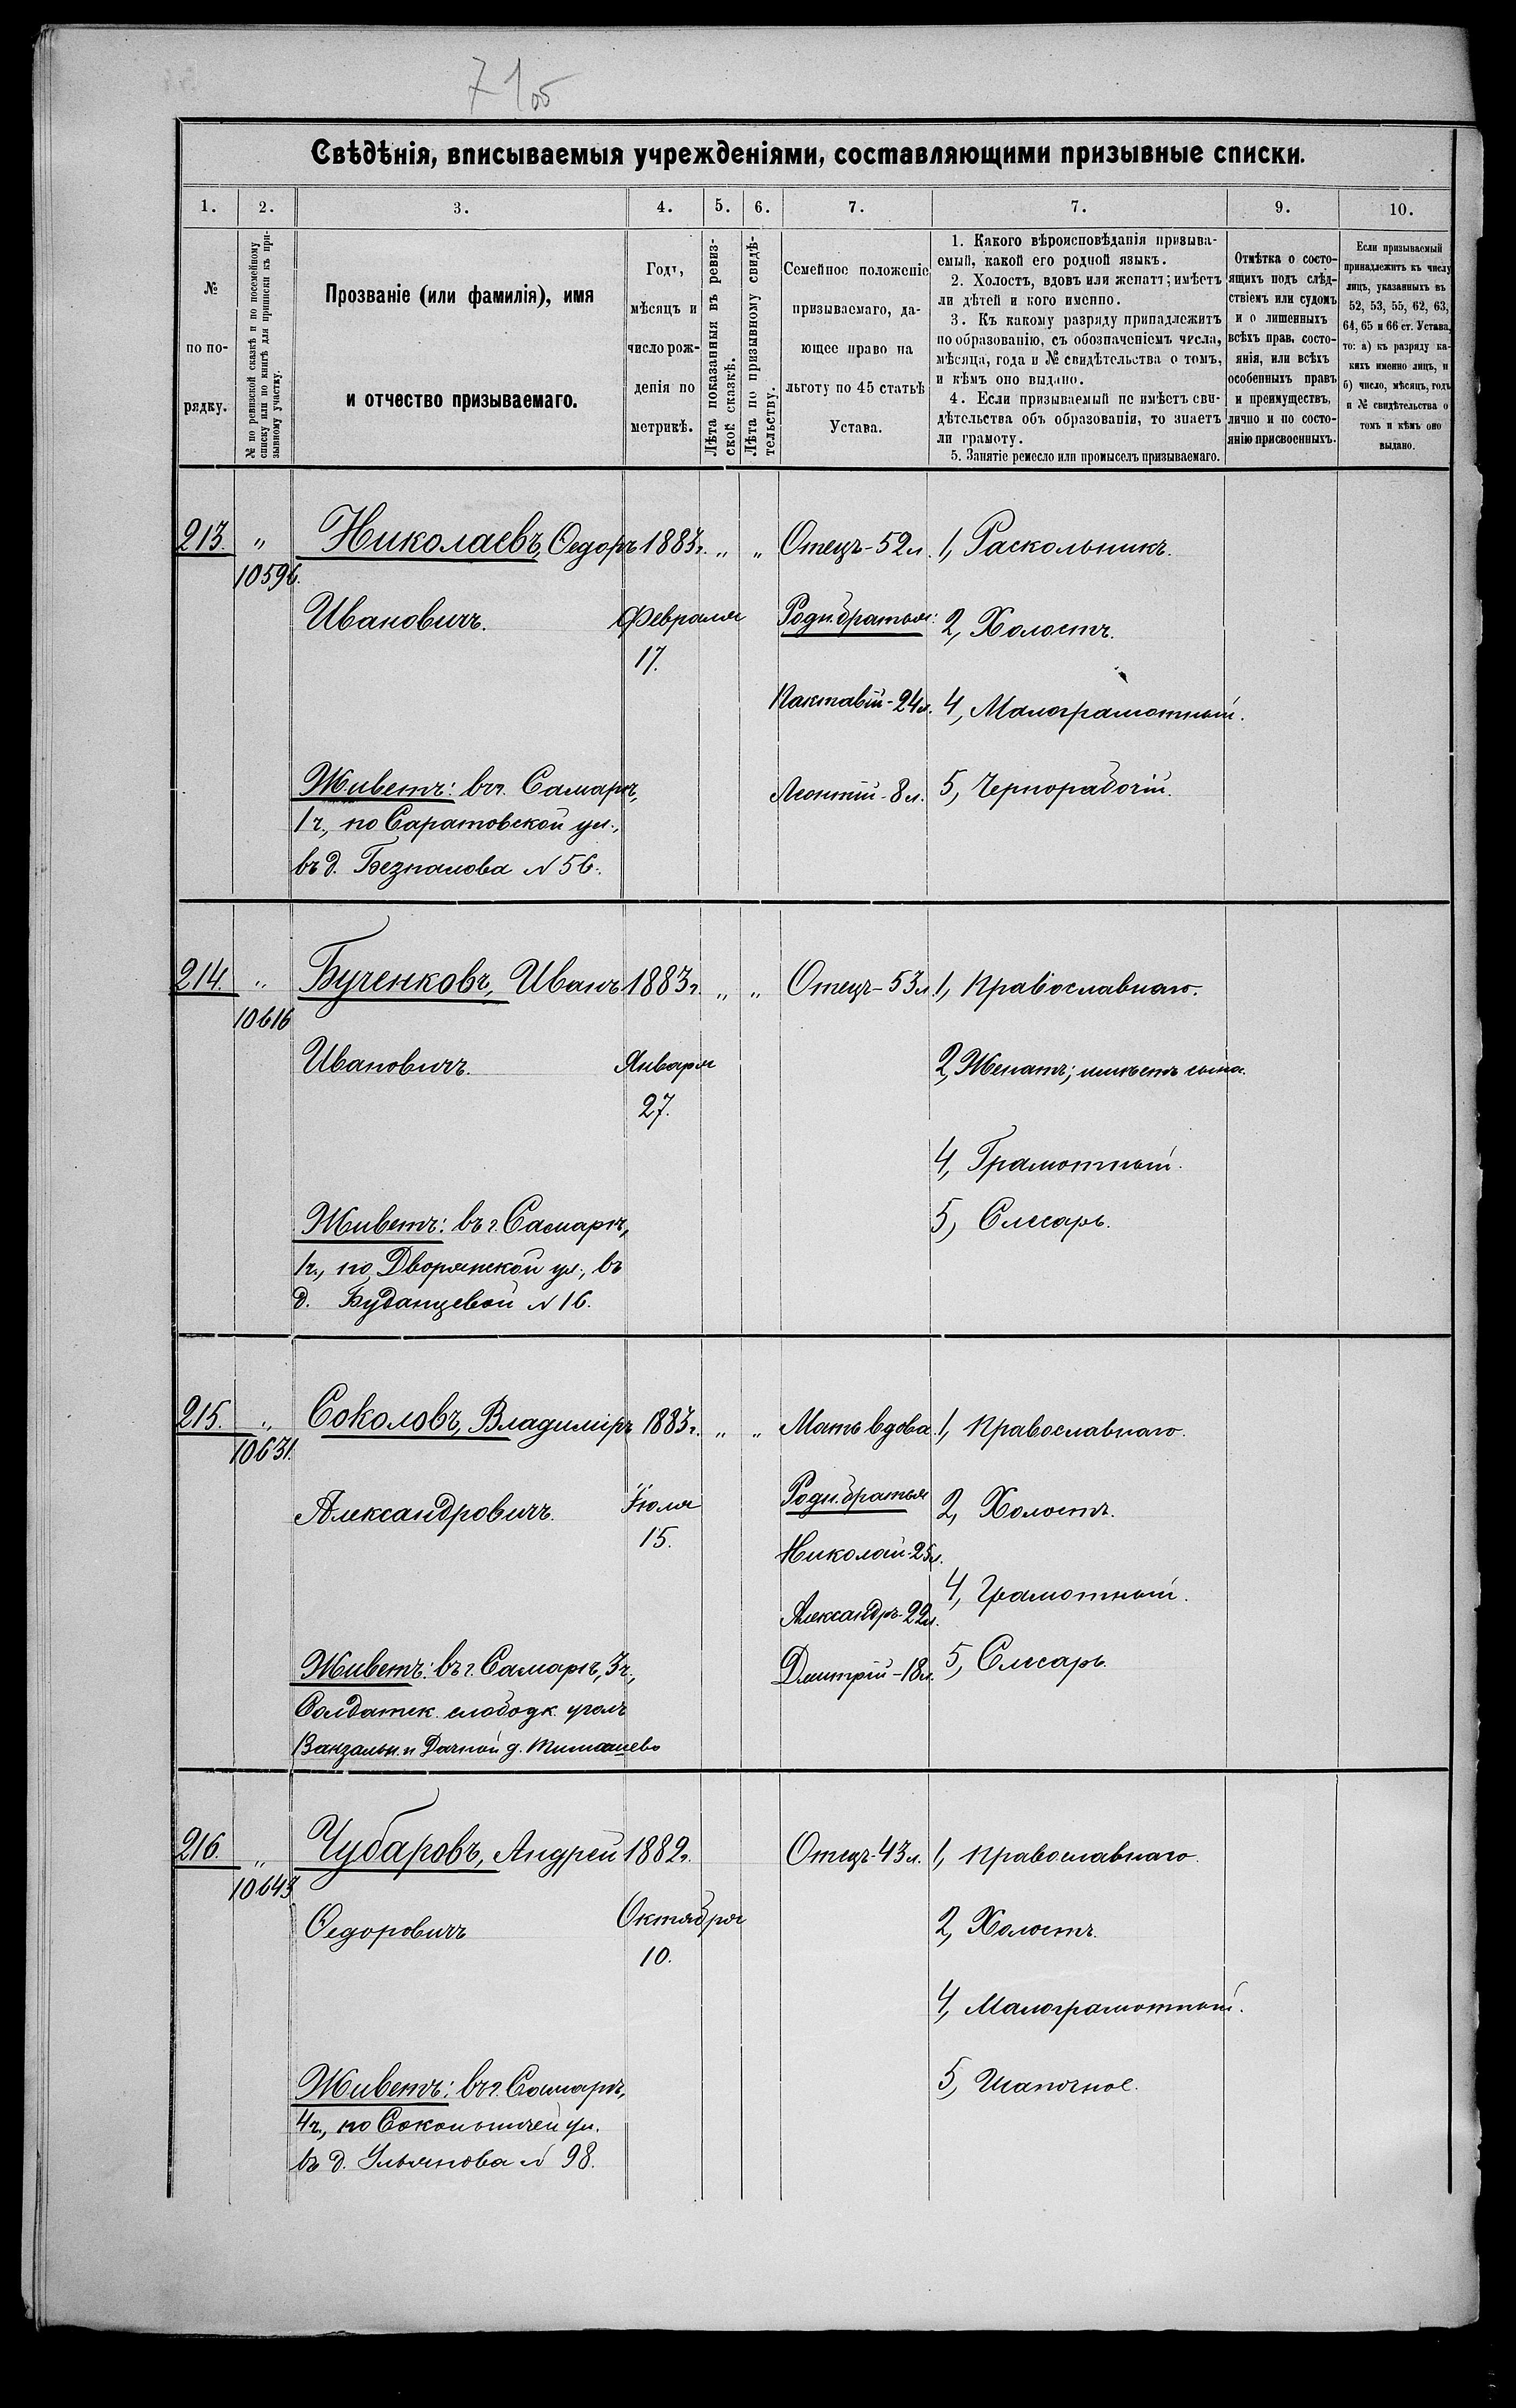 71об
Свѣдѣнія, вписываемыя учрежденіями, составляющими призывные списки.
1. 2. 3. 4. 5. 6. 7. 7. 9. 10.
№
по по-
рядку.
№ по ревизской сказкѣ и по посемейному
списку или по книгѣ для приписки къ при-
зывному участку.
Прозваніе (или фамилія), имя
и отчество призываемаго.
Годъ,
мѣсяцъ и
число рож-
денія по
метрикѣ.
Лѣта показанныя въ ревиз-
ской сказкѣ.
Лѣта по призывному свидѣ-
тельству.
Семейное положеніе
призываемаго, да-
ющее право на
льготу по 45 статьѣ
Устава.
1. Какого вѣроисповѣданія призыва-
емый, какой его родной языкъ.
2. Холостъ, вдовъ или женатъ; имѣетъ
ли дѣтей и кого именно.
3. Къ какому разряду принадлежитъ
по образованію, съ обозначеніемъ числа,
мѣсяца, года и № свидѣтельства о томъ,
и кѣмъ оно выдано.
4. Если призываемый не имѣетъ сви-
дѣтельства объ образованіи, то знаетъ
ли грамоту.
5. Занятіе ремесло или промыселъ призываемаго.
Отмѣтка о состо-
ящихъ подъ слѣд-
ствіемъ или судомъ
и о лишенныхъ
всѣхъ прав. состо-
янія, или всѣхъ
особенныхъ правъ
и преимуществъ,
лично и по состо-
янію присвоенныхъ.
Если призываемый
принадлежитъ къ числу
лицъ, указанныхъ въ
52, 53, 55, 62, 63,
64, 65 и 66 ст. Устава,
то: а) къ разряду ка-
кихъ именно лицъ, и
б) число, мѣсяцъ, годъ
и № свидѣтельства о
томъ и кѣмъ оно
выдано.
213. " Николаевъ, Ѳедоръ 1883г. " " Отецъ-52л. 1, Раскольникъ.
10596.
Ивановичъ. Февраля Родн. братья: 2, Холостъ.
17.
Пактавій-24л. 4, Малограмотный.
Живетъ: въ г. Самарѣ, Леонтій-8л. 5, Чернорабочій.
1 ч., по Саратовской ул.,
въ д. Безпалова N 56.
214. " Бученковъ, Иванъ 1883г. " " Отецъ-53л. 1, Православнаго.
10616
Ивановичъ. Января 2, Женатъ; имѣетъ сына.
27.
4, Грамотный.
Живетъ: въ г. Самарѣ, 5, Слесарь.
1ч., по Дворянской ул., въ
д. Буданцевой N 16.
215. " Соколовъ, Владиміръ 1883г. " " Мать вдова. 1, Православнаго.
10631.
Александровичъ. Іюля Родн. братья 2, Холостъ.
15.
Николай-25л.
4, Грамотный.
Александръ-22л.
Живетъ: въ г. Самарѣ, 3ч., Дмитрій-18л. 5, Слесарь.
Солдатск. слободк. уголъ
Вакзальн. и Дачной д. Тимашево
216. " Чубаровъ, Андрей 1882г. Отецъ-43л. 1, Православнаго.
10643
Ѳедоровичъ Октября 2, Холостъ.
10.
4, Малограмотный.
Живетъ: въ г. Самарѣ, 5, Шапочное.
4ч., по Сокольничей ул.
въ д. Ульянова N 98.